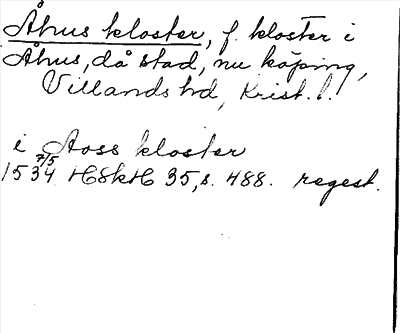 Åhus kloster, f. kloster i
Åhus, då stad, nu köping,
Villands hd, Krist. l.
i Aoss kloster
1534 7/5 HSkH 35, s. 488. regest.